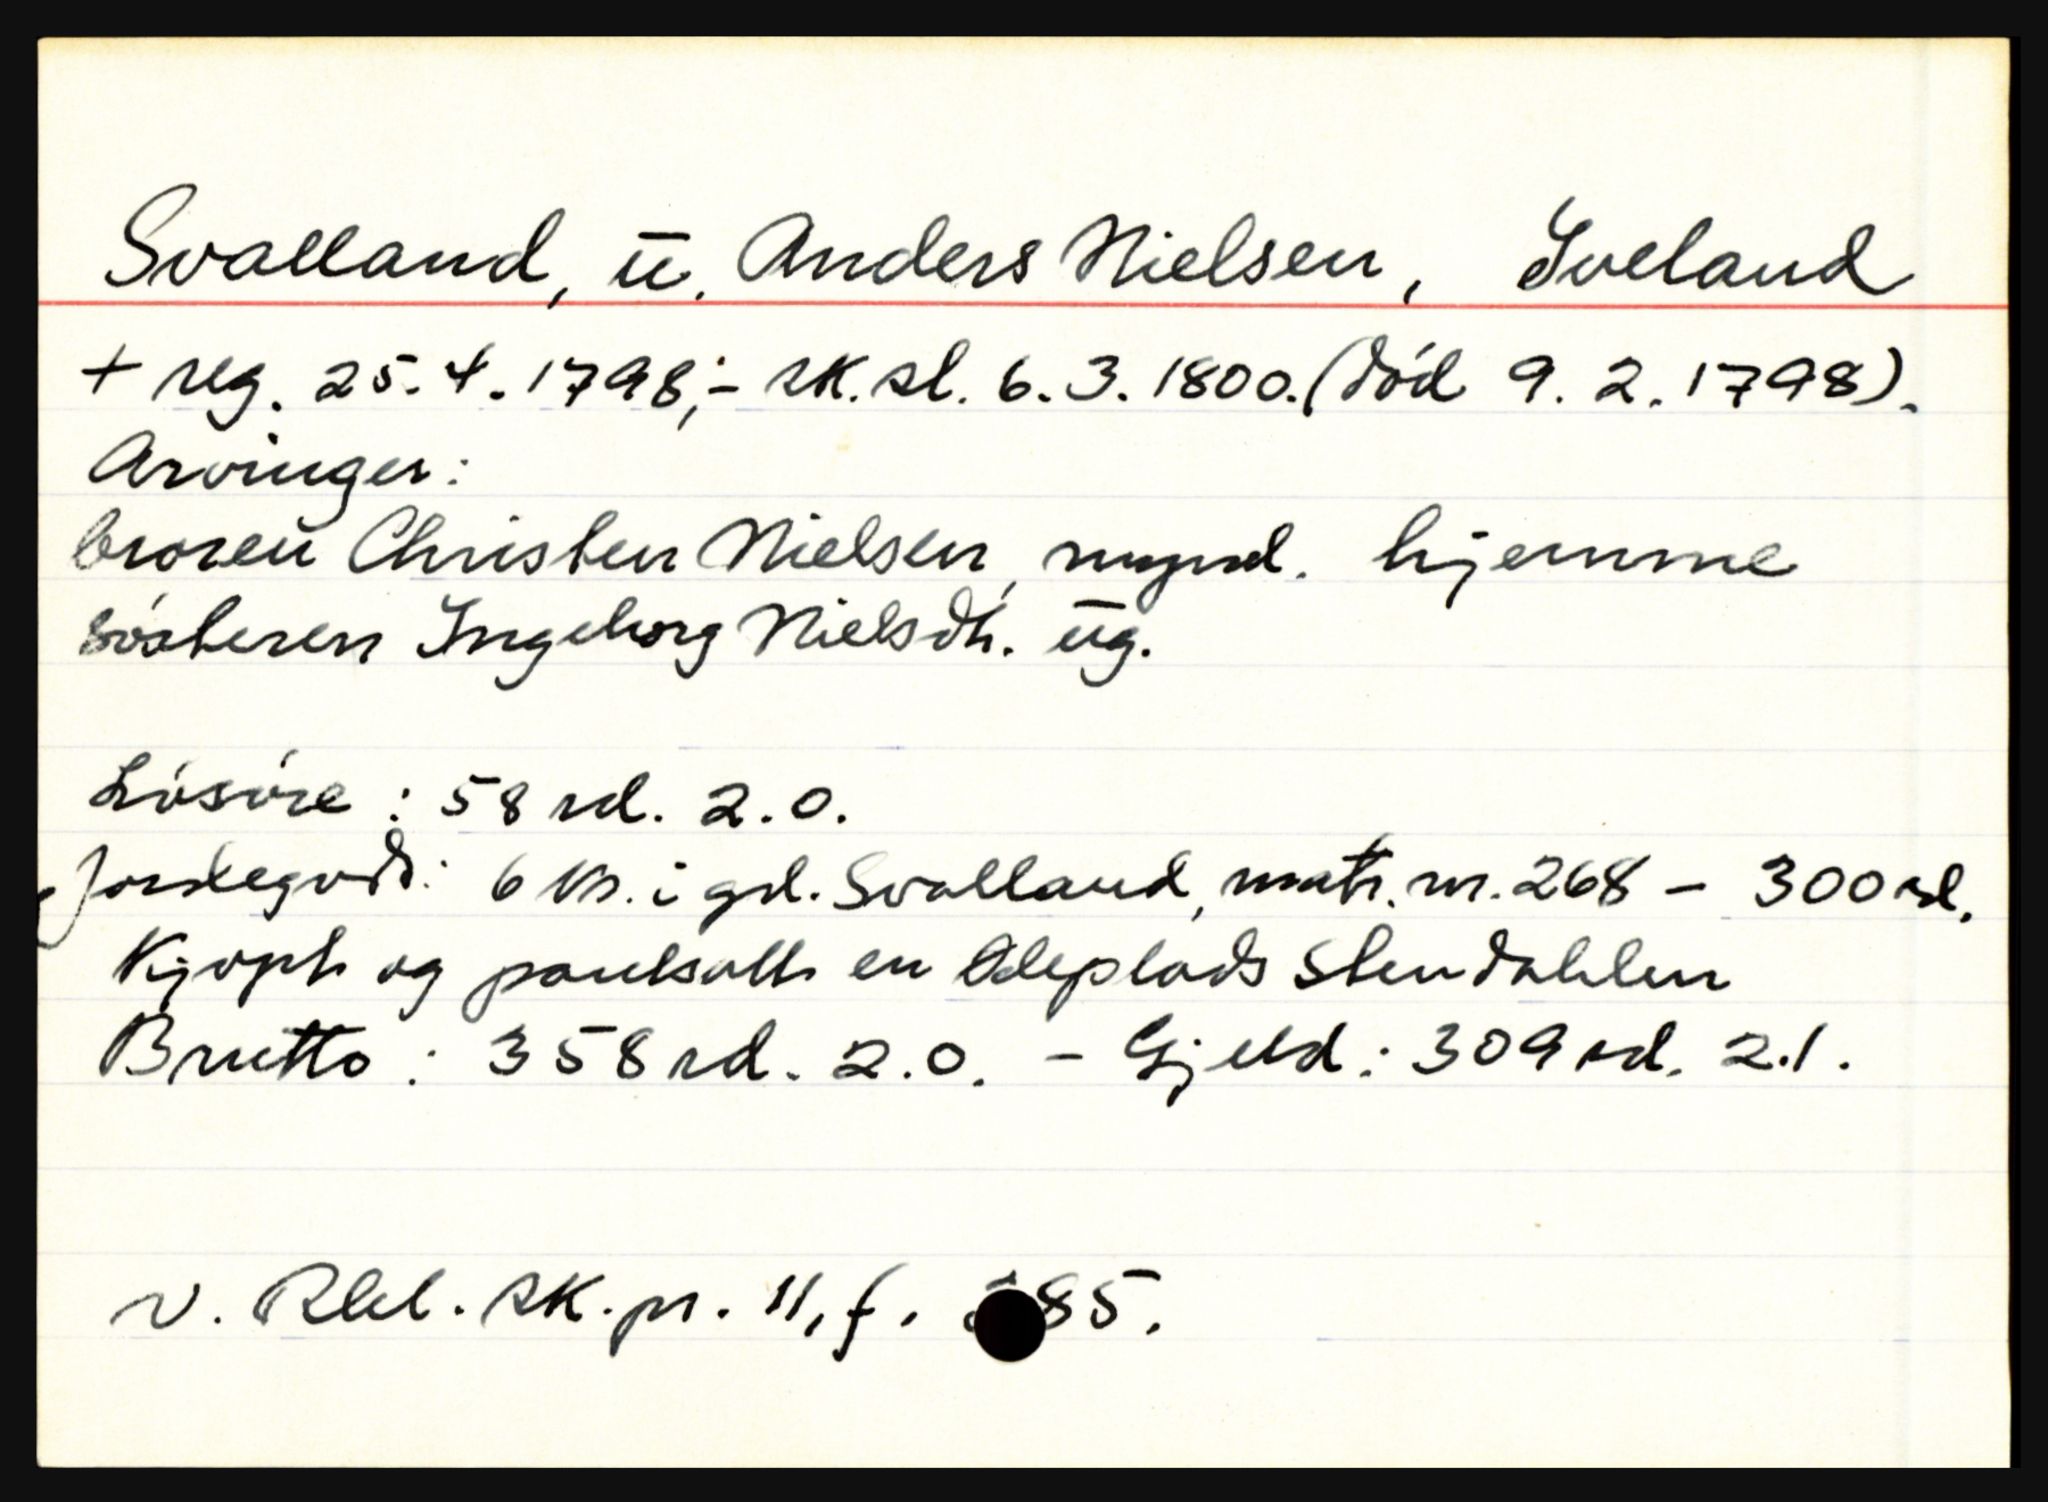 Svalland, ū. Anders Nielsen, Iveland
+ reg. 25.4.1798;- sk.sl. 6.3.1800. (død 9.2.1798).
Arvinger:
broren Christen Nielsen, mynd. hjemme
søsteren Ingeborg Nielsdtr. ūg.
Løsøre : 58 rd. 2.0.
Jordegods: 6 ks. i gd. Svalland, matr. nr. 268 - 300 rd.
Kjøpt og pantsatt en Ødeplads Stendahlen
Brutto : 358 rd. 2.0. - Gjeld : 309 rd. 2.1.
v. Rbl. sk.pr. 11, f. 85.